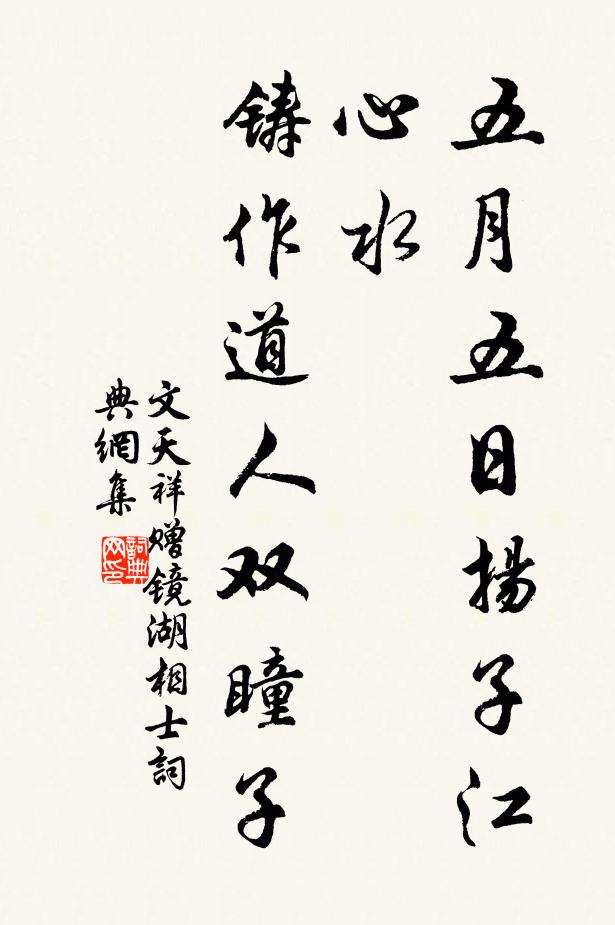 五月五日揚子江
心水
鑄作道人双瞳子
文天祥赠镜湖相士詞
典網集
詞典
网印